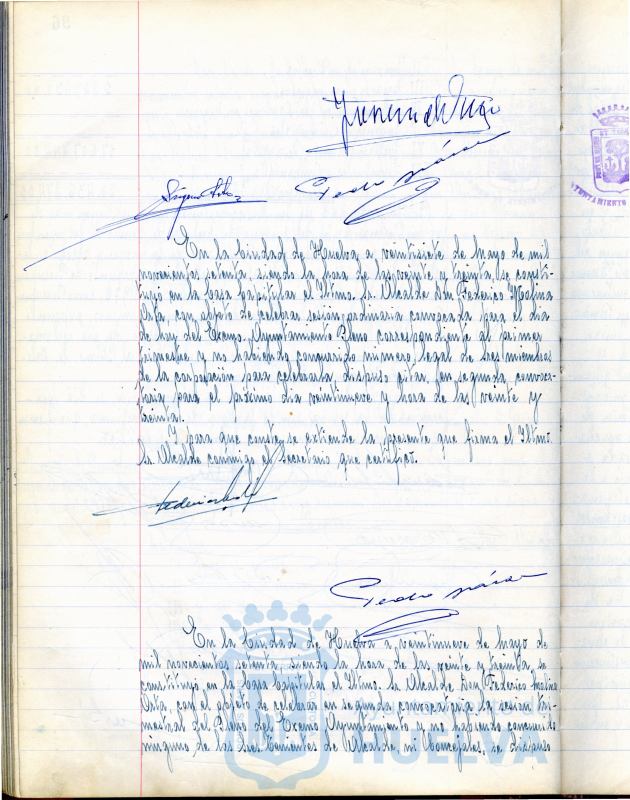 Pedro
En la Ciudad de Huelva a veintisiete de Mayo de mil
novecientos setenta, siendo la hora de las veinte y treinta, se consti-
tuyó en la Casa Capitular el Iltmo. Sr. Alcalde Don Federico Molina
Orta, con objeto de celebrar sesión ordinaria convocada para el día
de hoy del Excmo. Ayuntamiento Pleno correspondiente al primer
trimestre y no habiendo concurrido número legal de Sres. miembros
de la corporación para celebrarla, dispuso citar, en segunda convoca-
toria para el próximo día veintinueve y hora de las veinte y
treinta.
Y para que conste, se extiende la presente que firma el Iltmo.
Sr. Alcalde conmigo el Secretario que certifico.
Pedro
En la Ciudad de Huelva a veintinueve de Mayo de
mil novecientos setenta, siendo la hora de las veinte y treinta, se
constituyó en la Casa Capitular el Iltmo. Sr. Alcalde Don Federico Molina
Orta, con el objeto de celebrar en segunda convocatoria la sesión tri-
mestral del Pleno del Excmo. Ayuntamiento y no habiendo concurrido
ninguno de los Sres. Tenientes de Alcalde ni Concejales, se dispuso
HUELVA
AYUNTAMIENTO